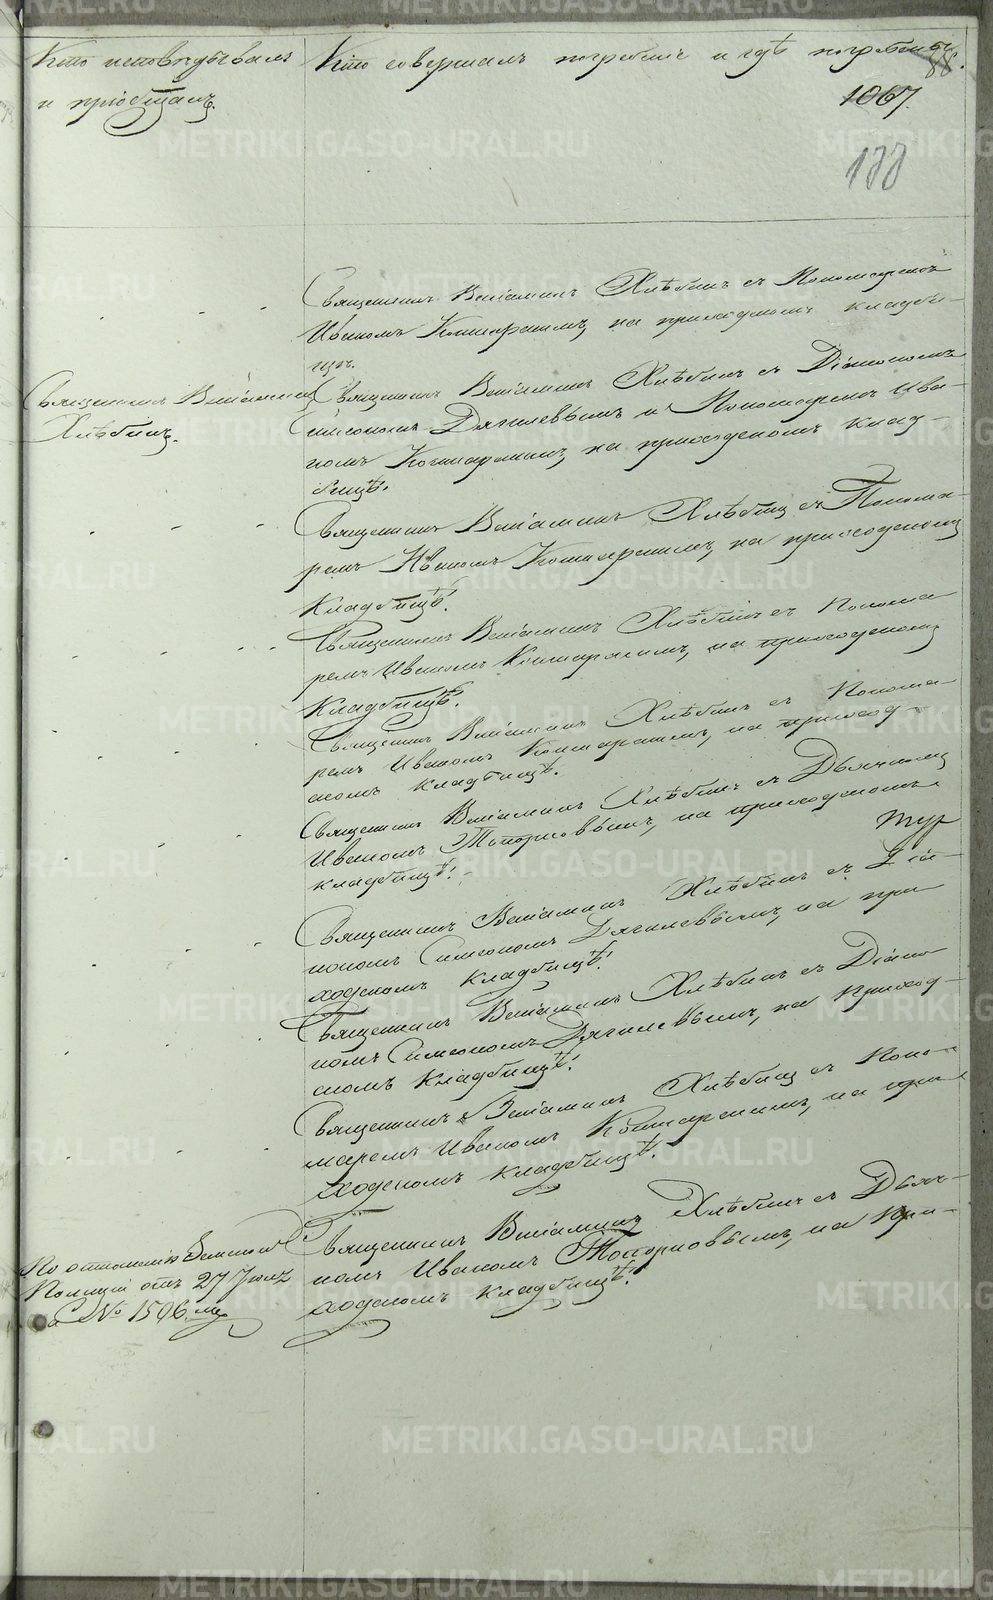 Кто исповѣдывалъ
и пріобщалъ.
Кто совершалъ погребеніе и гдѣ погребены.
88.
1067.
188
Священникъ Веніаминъ Хлѣбинъ съ Пономаремъ
Иваномъ на приходскомъ кладби-
щѣ.
Священникъ Веніаминъ
Хлѣбинъ.
Священникъ Веніаминъ Хлѣбинъ съ Діакономъ
Симеономъ Дягилевымъ и Пономаремъ Ива-
номъ на приходскомъ клад-
бищѣ.
Священникъ Веніаминъ Хлѣбинъ съ Понома-
ремъ Иваномъ на приходскомъ
кладбищѣ.
Священникъ Веніаминъ Хлѣбинъ съ Понома
ремъ Иваномъ на приходскомъ
кладбищѣ.
Священникъ Веніаминъ Хлѣбинъ съ Понома-
ремъ Иваномъ на приход-
скомъ кладбищѣ.
Священникъ Веніаминъ Хлѣбинъ съ Дьячкомъ
Иваномъ Топорковымъ, на приходскомъ
кладбищѣ.
Священникъ Веніаминъ Хлѣбинъ съ Діа-
кономъ Симеономъ Дягилевымъ, на при
ходскомъ кладбищѣ.
Священникъ Веніаминъ Хлѣбинъ съ Діако
номъ Симеономъ Дягилевымъ, на приход-
скомъ кладбищѣ.
Священникъ Веніаминъ Хлѣбинъ съ Поно-
маремъ Иваномъ на при
ходскомъ кладбищѣ.
По отношенію Земской
Полиціи отъ 27 Іюля
за № 1596.
Священникъ Веніаминъ Хлѣбинъ съ Дьяч-
комъ Иваномъ Топорковымъ, на при-
ходскомъ кладбищѣ.
METRIKI.GASO-URAL.RU